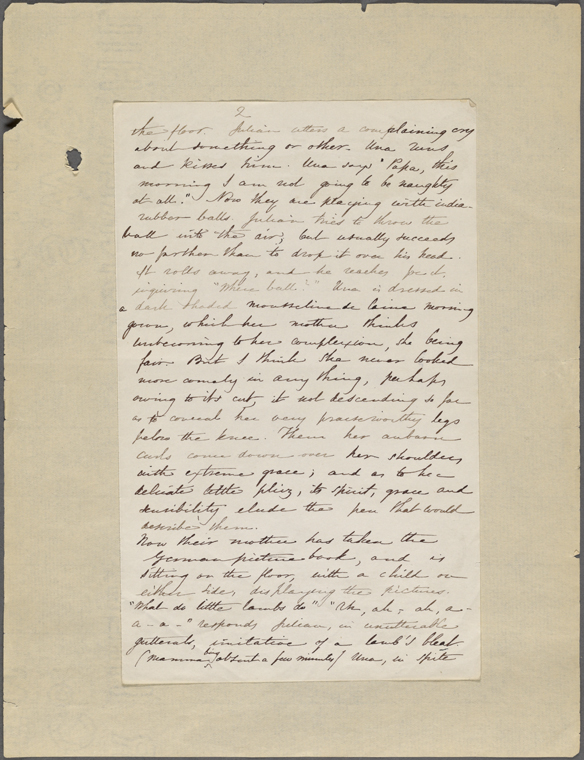 2
the floor. Julian utters a complaining cry
about something or other. Una runs
and kisses him. Una says "Papa, this
morning I am not going to be naughty
at all." Now they are playing with india-
rubber balls. Julian tries to throw the
ball into the air, but usually succeeds
no farther than to drop it over his head.
It rolls away, and he reaches for it,
inquiring "Where ball?" Una is dressed in
a dark shaded mousseline de laine morning
gown, which her mother thinks
unbecoming to her complexion, she being
fair. But I think she never looked
more comely in any thing, perhaps
owing to its cut, it not descending so far
as to conceal her very praiseworthy legs
below the knee. Then her auburn
curls come down over her shoulders
with extreme grace; and as to her
delicate little phiz, its spirit, grace and
sensibility elude the pen that would
describe them.
Now their mother has taken the
German picture book, and is
sitting on the floor, with a child on
either side, displaying the pictures.
"What do little lambs do" "Ah, ah, ah, a-
a - a -" responds Julian, in unutterable
gutterals, imitative of a lamb's bleat
(Mamma absent a few minutes) Una, in spite